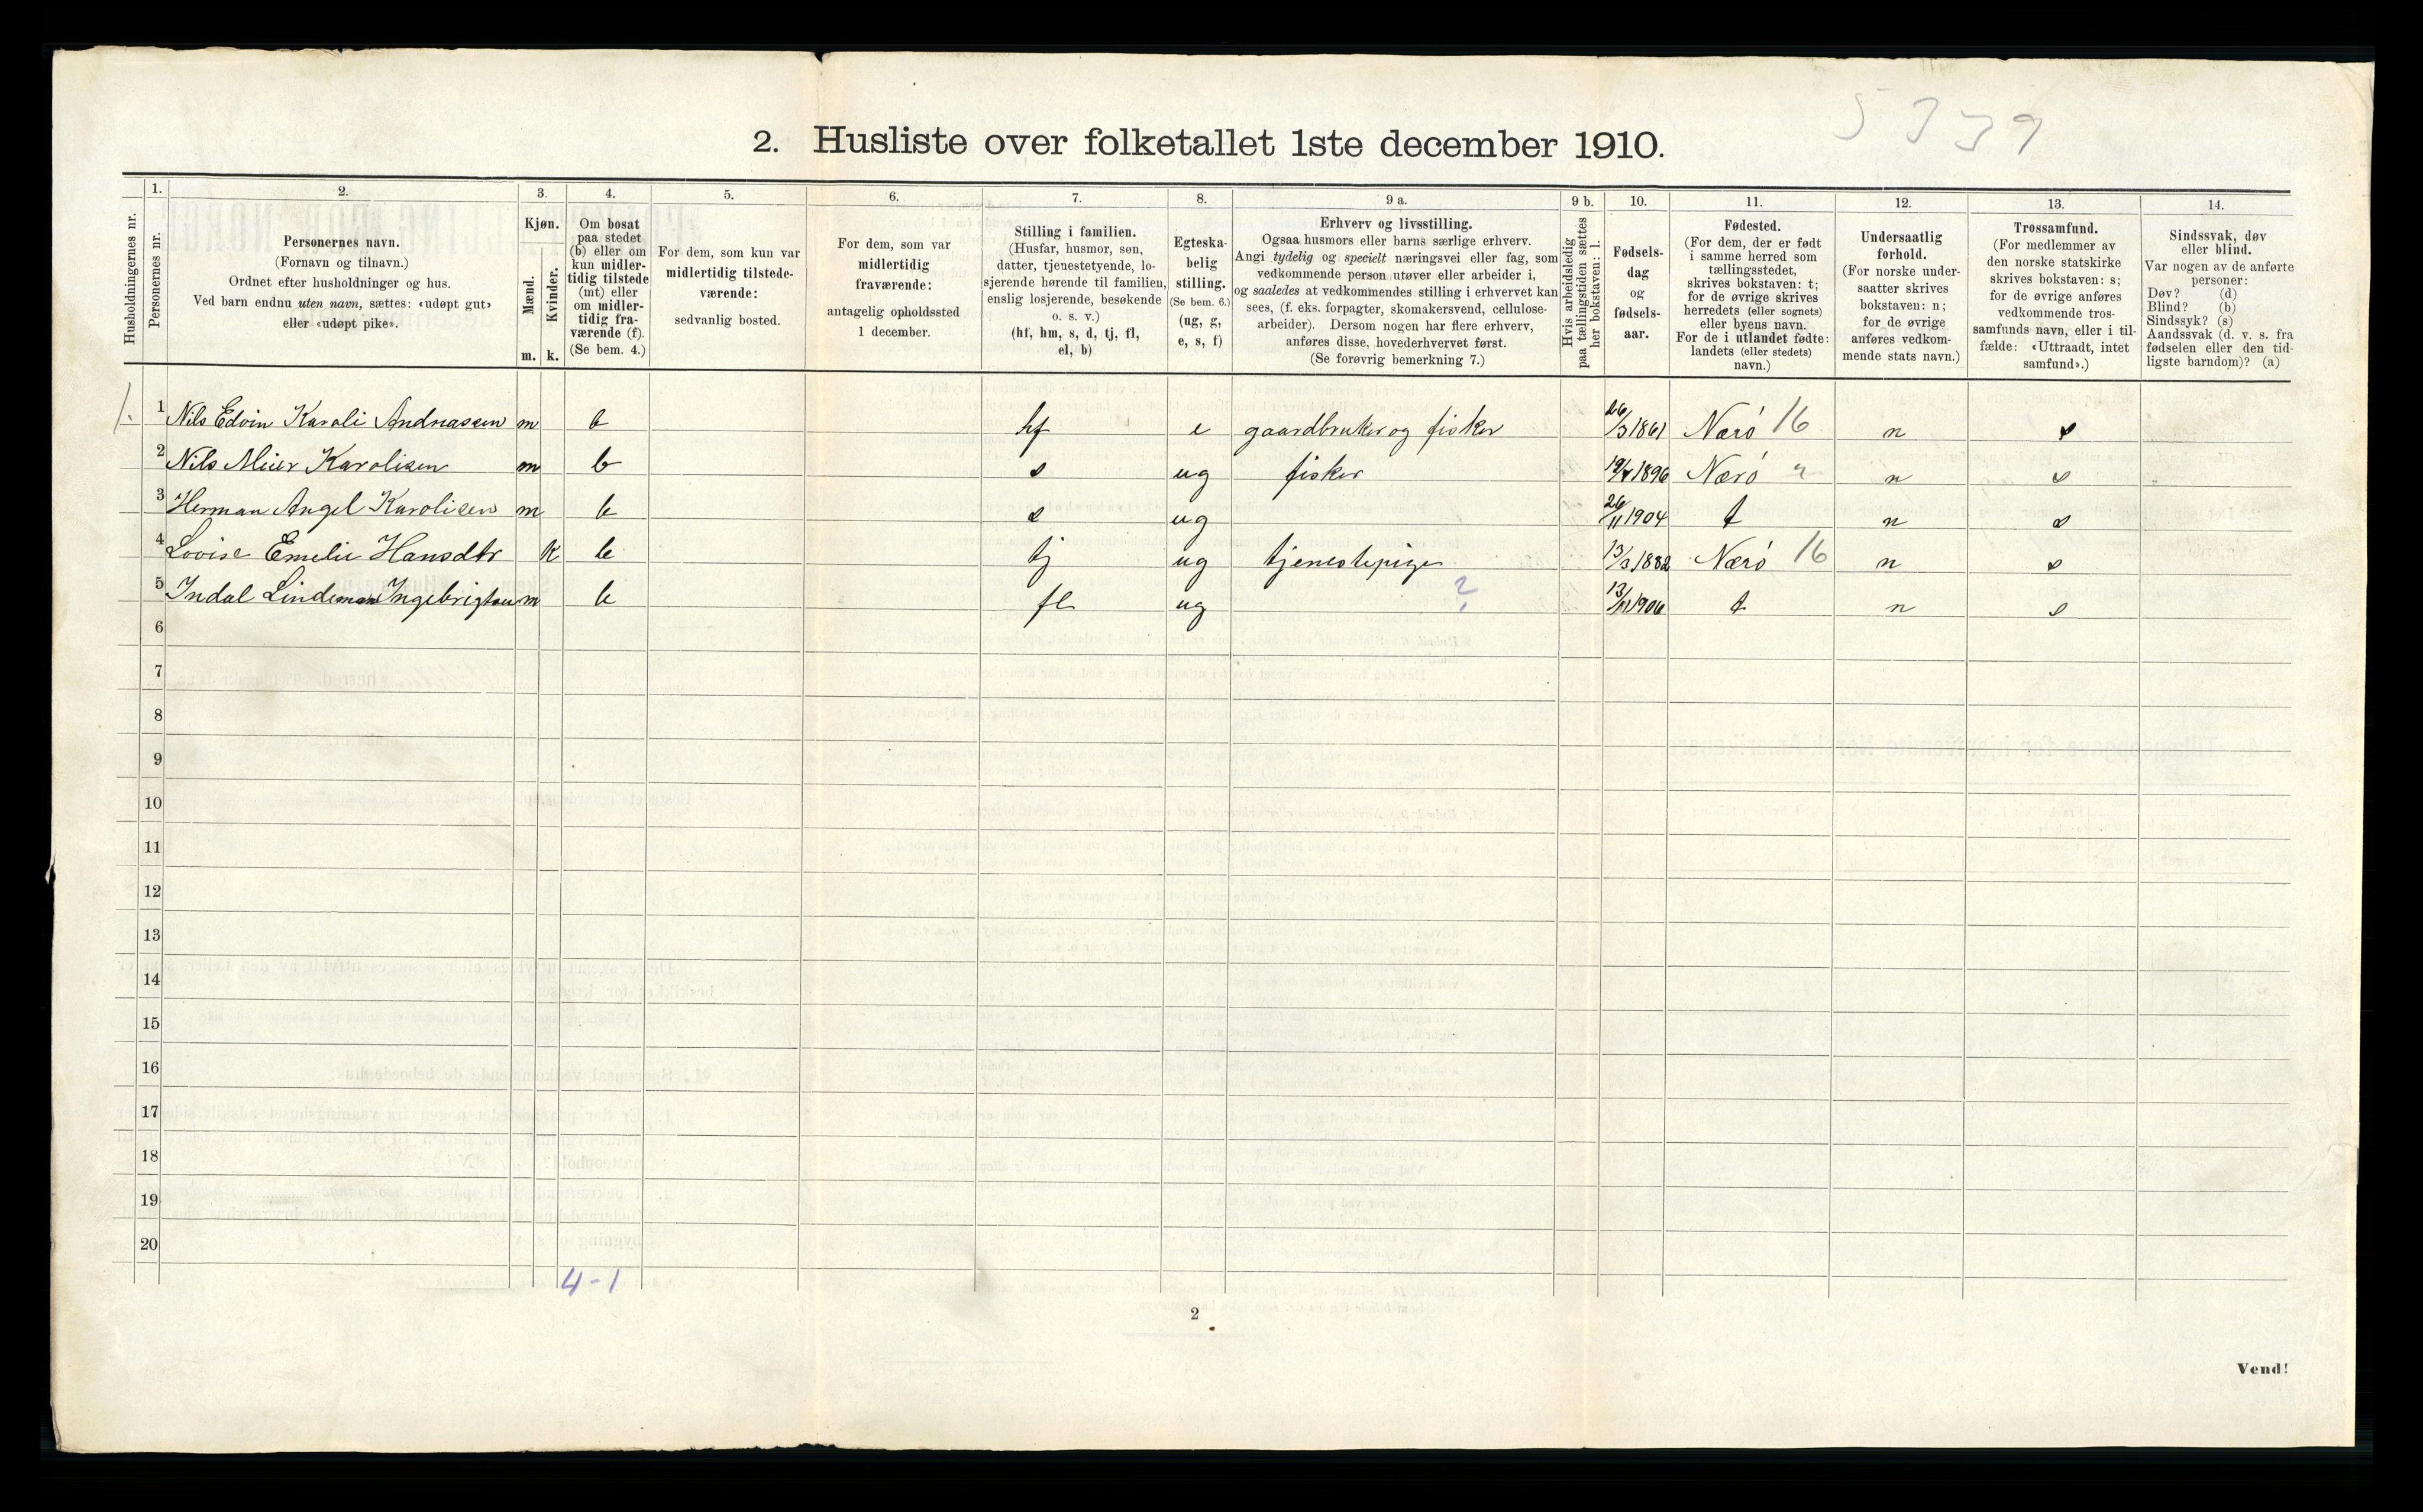 5339
2. Husliste over folketallet 1ste december 1910.
Husholdningernes nr.
1.
Personernes nr.
2.
Personernes navn.
(Fornavn og tilnavn.)
Ordnet efter husholdninger og hus.
Ved barn endnu uten navn, sættes: «udøpt gut»
eller «udøpt pike».
3.
Kjøn.
Mænd.
m.
Kvinder.
k.
4.
Om bosat
paa stedet
(b) eller om
kun midler-
tidig tilstede
(mt) eller
om midler-
tidig fra-
værende (f).
(Se bem. 4.)
5.
For dem, som kun var
midlertidig tilstede-
værende:
sedvanlig bosted.
6.
For dem, som var
midlertidig
fraværende:
antagelig opholdssted
1 december.
7.
Stilling i familien.
(Husfar, husmor, søn,
datter, tjenestetyende, lo-
sjerende hørende til familien,
enslig losjerende, besøkende
o. s. v.)
(hf, hm, s, d, tj, fl,
el, b)
8.
Egteska-
belig
stilling.
(Se bem. 6.)
(ug, g,
e, s, f)
9 a.
Erhverv og livsstilling.
Ogsaa husmors eller barns særlige erhverv.
Angi tydelig og specielt næringsvei eller fag, som
vedkommende person utøver eller arbeider i,
og saaledes at vedkommendes stilling i erhvervet kan
sees, (f. eks. forpagter, skomakersvend, cellulose-
arbeider). Dersom nogen har flere erhverv,
anføres disse, hovederhvervet først.
(Se forøvrig bemerkning 7.)
9 b.
Hvis arbeidsledig
paa tællingstiden sættes
her bokstaven: l.
10.
Fødsels-
dag
og
fødsels-
aar.
11.
Fødested.
(For dem, der er født
i samme herred som
tællingsstedet,
skrives bokstaven: t;
for de øvrige skrives
herredets (eller sognets)
eller byens navn.
For de i utlandet fødte:
landets (eller stedets)
navn.)
12.
Undersaatlig
forhold.
(For norske under-
saatter skrives
bokstaven: n;
for de øvrige
anføres vedkom-
mende stats navn.)
13.
Trossamfund.
(For medlemmer av
den norske statskirke
skrives bokstaven: s;
for de øvrige anføres
vedkommende tros-
samfunds navn, eller i til-
fælde: «Uttraadt, intet
samfund».)
14.
Sindssvak, døv
eller blind.
Var nogen av de anførte
personer:
Døv? (d)
Blind? (b)
Sindssyk? (s)
Aandssvak (d. v. s. fra
fødselen eller den tid-
ligste barndom)? (a)
1. 1 Nils Edvin Karoli Andreassen m b hf e gaardbruker og fisker 26/3 1861 Nærö 16 n s
2 Nils Meier Karolisen m b s ug fisker 19/4 1896 Nærö " n s
3 Herman Angel Karolisen m b s ug 26/11 1904 t n s
4 Lovise Emelie Hansdtr k b tj ug tjenestepige 13/3 1882 Nærö 16 n s
5 Indal Lindeman Ingebrigtsen m b fl ug ? 13/11 1906 t n s
6
7
8
9
10
11
12
13
14
15
16
17
18
19
20
4-1
2
Vend!